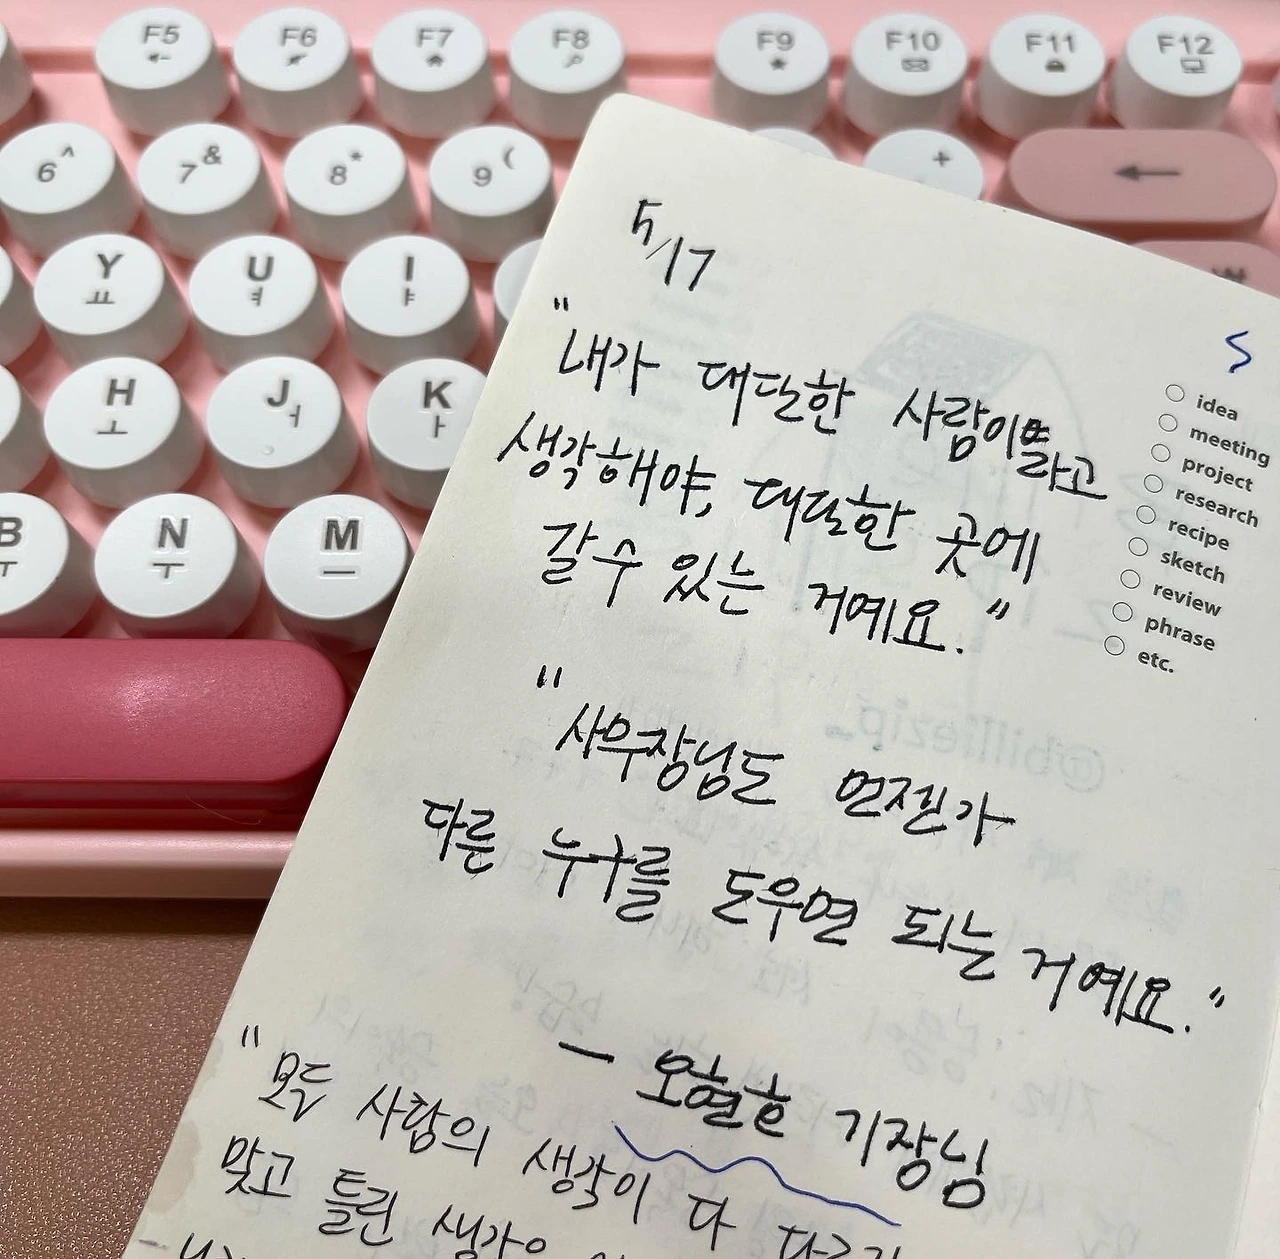 F5 F6 F7 F8 F9 F10 F11 F12
6 ^ 7 & 8 * 9 ( + ←
Y ㅛ U ㅕ I ㅑ ₩
H ㅗ J ㅓ K ㅏ
B ㅠ N ㅜ M ㅡ
5/17
"내가 대단한 사람이라고
생각해야, 대단한 곳에
갈 수 있는 거예요."
"사무장님도 언젠가
다른 누구를 도우면 되는 거예요."
— 오현호 기장님
"모든 사람의 생각이 다
맞고 틀린 생각은
idea
meeting
project
research
recipe
sketch
review
phrase
etc.
@billiezip_